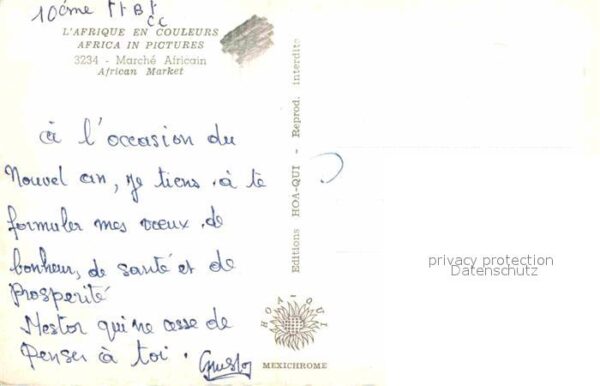 10éme
L'AFRIQUE EN COULEURS
AFRICA IN PICTURES
3234 - Marché Africain
African Market
à l'occasion du
Nouvel an, je tiens à te
formuler mes vœux de
bonheur, de santé et de
Prosperité
Nestor qui ne cesse de
Penser à toi.
Editions HOA-QUI - Reprod. interdite
HOA-QUI
MEXICHROME
privacy protection
Datenschutz